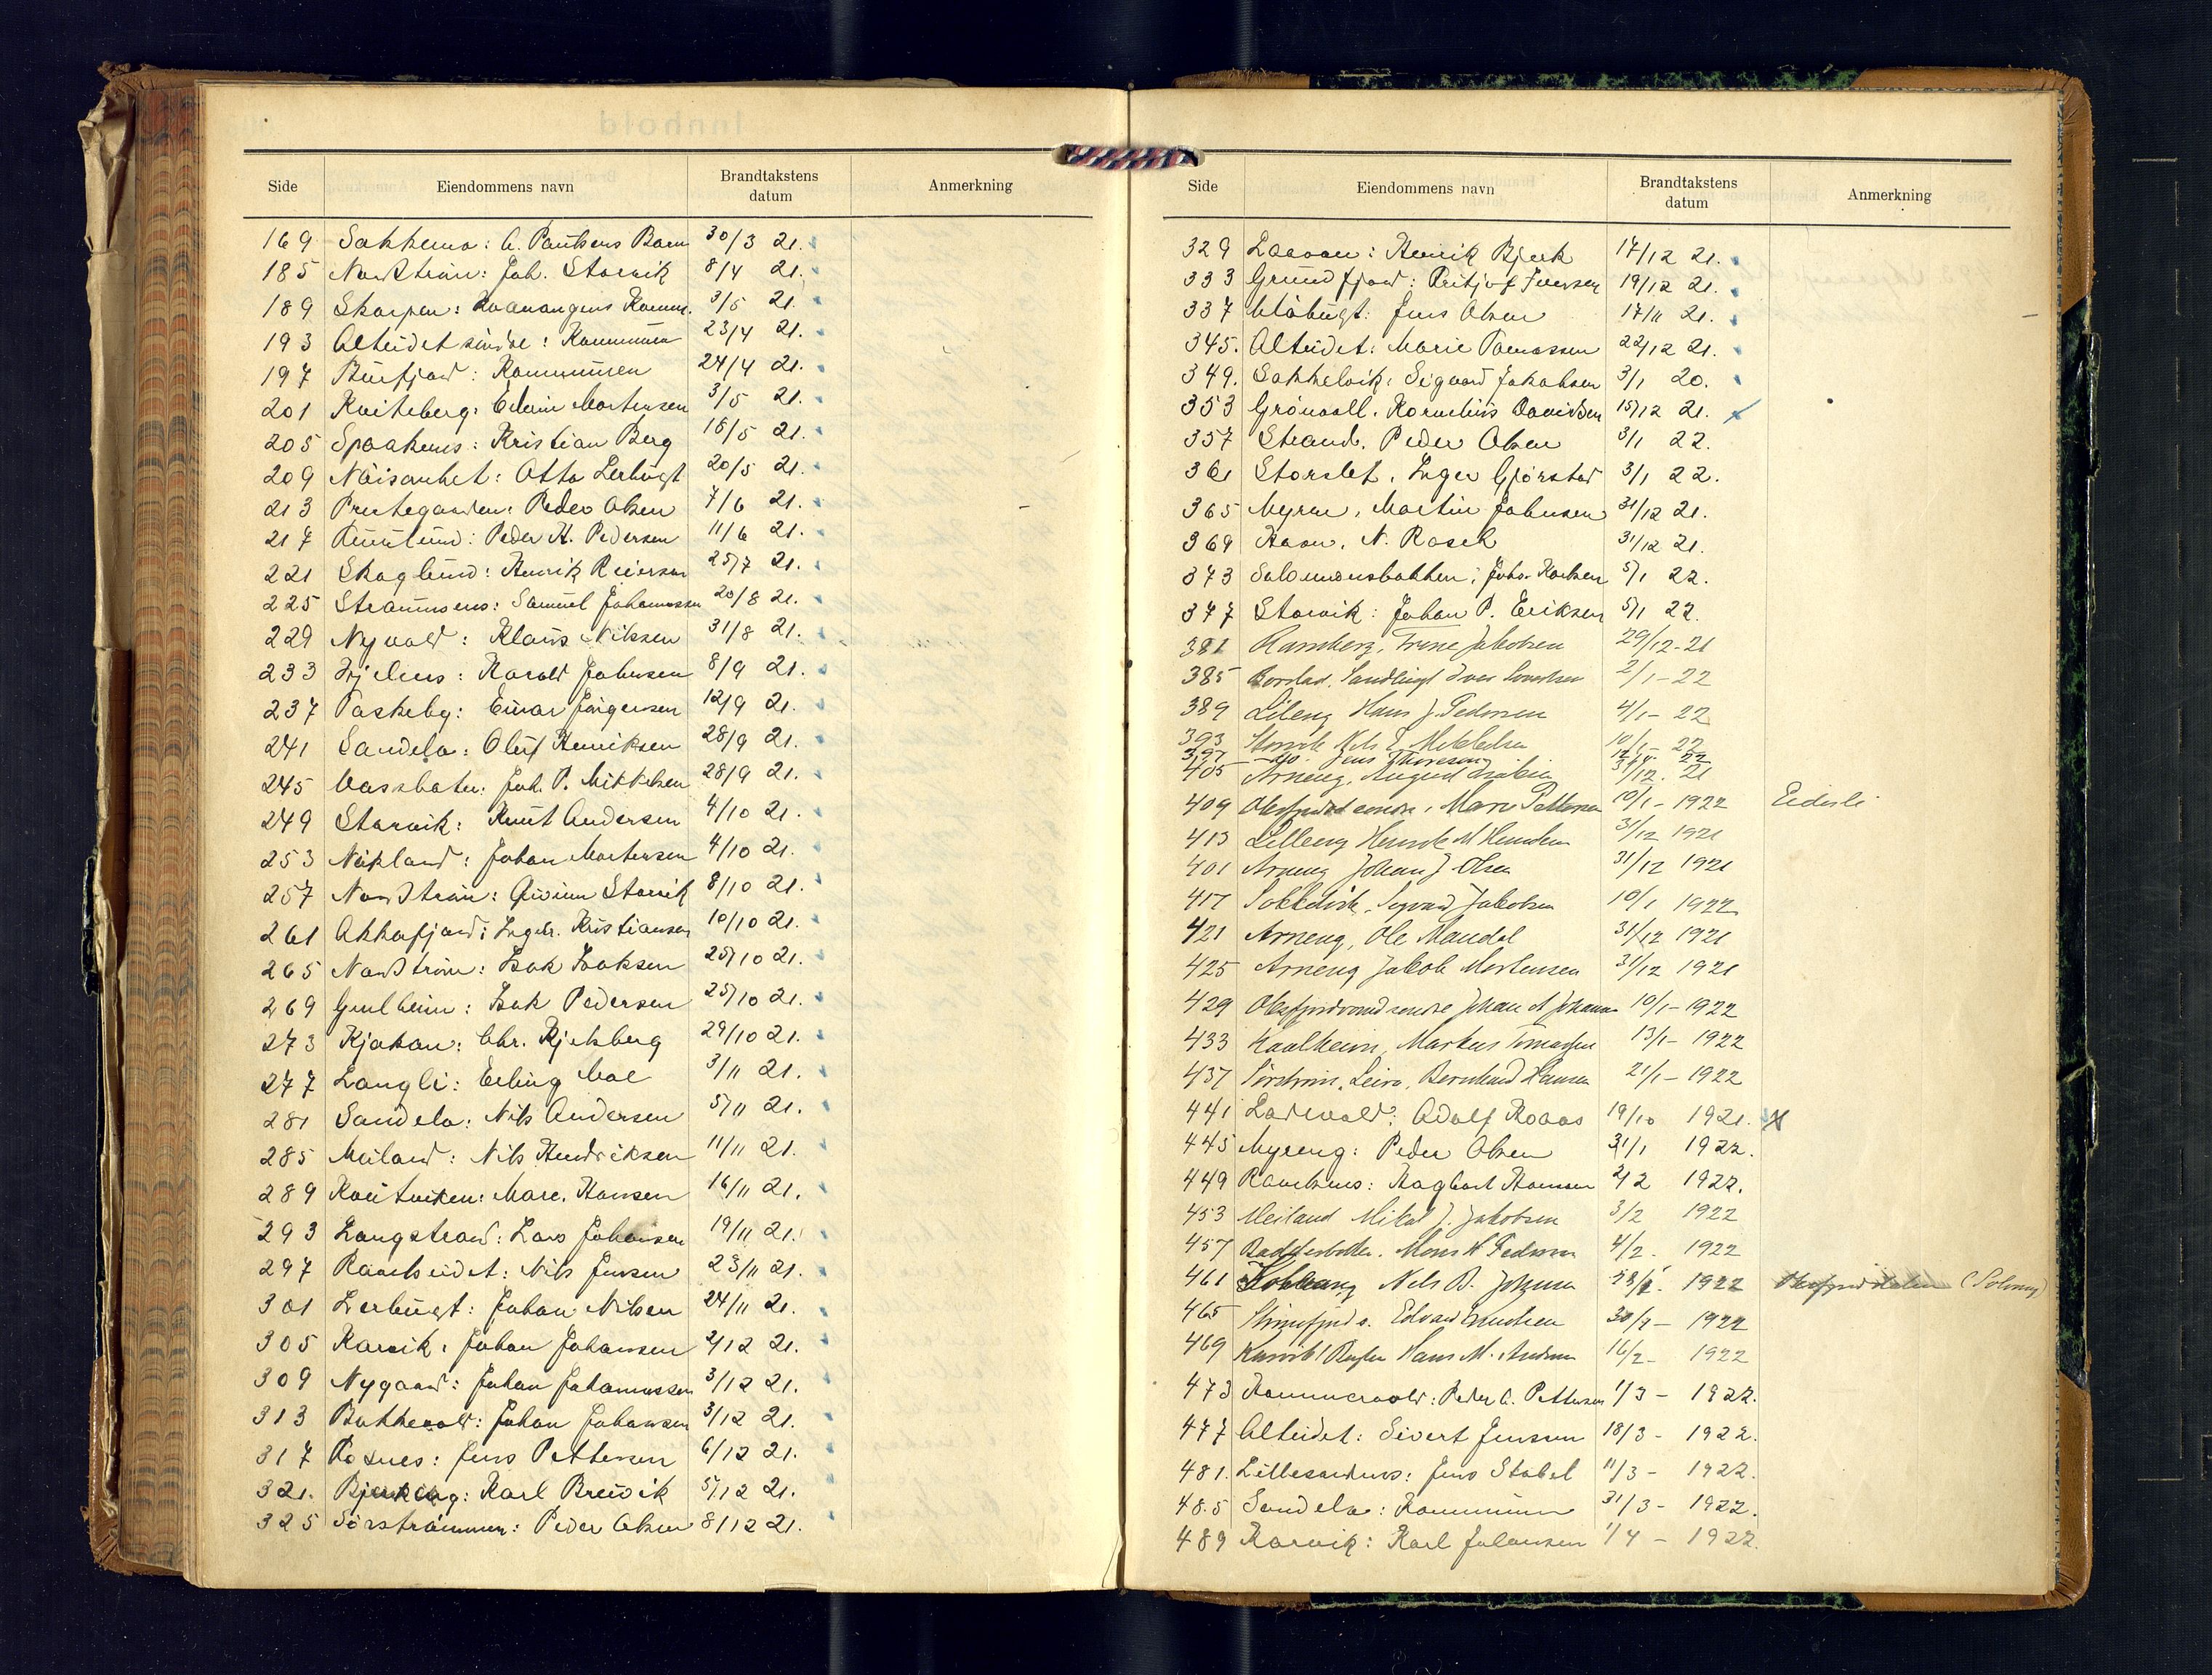 Side Eiendommens navn Brandtakstens datum Anmerkning
169 Sakkemo: A. Paulsens Barn 30/3 21.
185 Nordström: Joh. Storvik 8/4 21.
189 Skorpen: Kvænangens Komm. 3/5 21.
193 Alteidet søndre: Kommunen 23/4 21.
197 Burfjord: Kommunen 24/4 21.
201 Kviteberg: Edevin Mortensen 3/5 21.
205 Spaakenes: Kristian Berg 18/5 21.
209 Nöisomhet: Otto Lerbugt 20/5 21.
213 Prestegaarden: Peder Olsen 7/6 21.
217 Peder H. Pedersen 11/6 21.
221 Skoglund: Henrik Reiersen 25/7 21.
225 Straumsnes: Samuel Johannessen 20/8 21.
229 Nyvold: Klaus Nilssen 31/8 21.
233 Harald Johnsen 8/9 21.
237 Paskeby: Einar Jörgensen 12/9 21.
241 Sandela: Oluf Henriksen 28/9 21.
245 Vassbotn: Joh. P. Mikkelsen 28/9 21.
249 Storvik: Knut Andersen 4/10 21.
253 Nökland: Johan Mortensen 4/10 21.
257 Nordström: Storvik 8/10 21.
261 Akkafjord: Ingebr. Kristiansen 10/10 21.
265 Nordström: Isak Isaksen 25/10 21.
269 Isak Pedersen 25/10 21.
273 Kjækan: Chr. Kjelsberg 29/10 21.
277 Langli: Erling Moe 3/11 21.
281 Sandela: Nils Andersen 5/11 21.
285 Meiland: Nils Hendriksen 11/11 21.
289 Mare. Hansen 16/11 21.
293 Langstrand: Lars Johansen 19/11 21.
297 Ravelseidet: Nils Jensen 23/11 21.
301 Lerbugt: Johan Nilsen 24/11 21.
305 Karvik: Johan Johansen 2/12 21.
309 Nygaard: Johan Johannessen 3/12 21.
313 Bakkevold: Johan Johansen 3/12 21.
317 Rosnes: Jens Pettersen 6/12 21.
321. Bjerkeng: Karl Breivik 5/12 21.
325 Sörströmmen: Peder Olsen 8/12 21.
Side Eiendommens navn Brandtakstens datum Anmerkning
329 Henrik Bjerk 17/12 21.
333 Grundfjord: Fritjof Iversen 19/12 21.
337 Jens Olsen 17/11 21.
345. Alteidet: Marie Tomassen 22/12 21.
349. Sakkelvik: Sigvard Jakobsen 3/1 20.
353 Grönvoll. Kornelius Davidsen 15/12 21.
357 Strand. Peder Olsen 3/1 22.
361 Storslet. Inger Gjörstad 3/1 22.
365 Myren. Martin Johnsen 31/12 21.
369 Havn. N. Rasch 31/12 21.
373 Salomonsbakken: Johs. Karlsen 5/1 22.
377 Storvik: Johan P. Eriksen 5/1 22.
381 Ramberg, Trine Jakobsen 29/12-21
385 2/1-22
389 Lileng Hans J. Pedersen 4/1- 22
393 Storvik Nils E. Mikkelsen 10/1- 22
397 do. Jens Thoresen 22
405 Arneng, August 31/12. 21
409 Pettersen 10/1-1922 Eiderli
413 Lilleeng Henrik M 31/12 1921
401 Arneng Johan J Olsen 31/12 1921
417 Sigvard Jakobsen 10/1 1922
421 Arneng, Ole Mandal 31/12 1921
425 Arneng Jakob Mortensen 31/12 1921
429 Johan 10/1-1922
433 Kaalheim, Markus Tomassen 13/1- 1922
437 Sörström, Leira, Bernhard Hansen 21/1-1922
441 Ladevold: Adolf Roaas 19/10 1921.
445 Myreng: Peder Olsen 31/1 1922.
449 Ravelsnes: Hagbart Hansen 2/2 1922.
453 Meiland Mikal J. Jakobsen 3/2 1922
457 Mons H Pedersen 4/2. 1922
461 Nils B. 1922 (Solvang)
465 Edvard 1922
469 Hans M. 16/2- 1922
473 Peder A. Pettersen 1/3 - 1922.
477 Alteidet: Sivert Jenssen 18/3 - 1922.
481. Jens Stabel 11/3 - 1922.
485 Sandela: Kommunen 31/3 - 1922.
489 Karvik: Karl Johansen 1/4 - 1922.